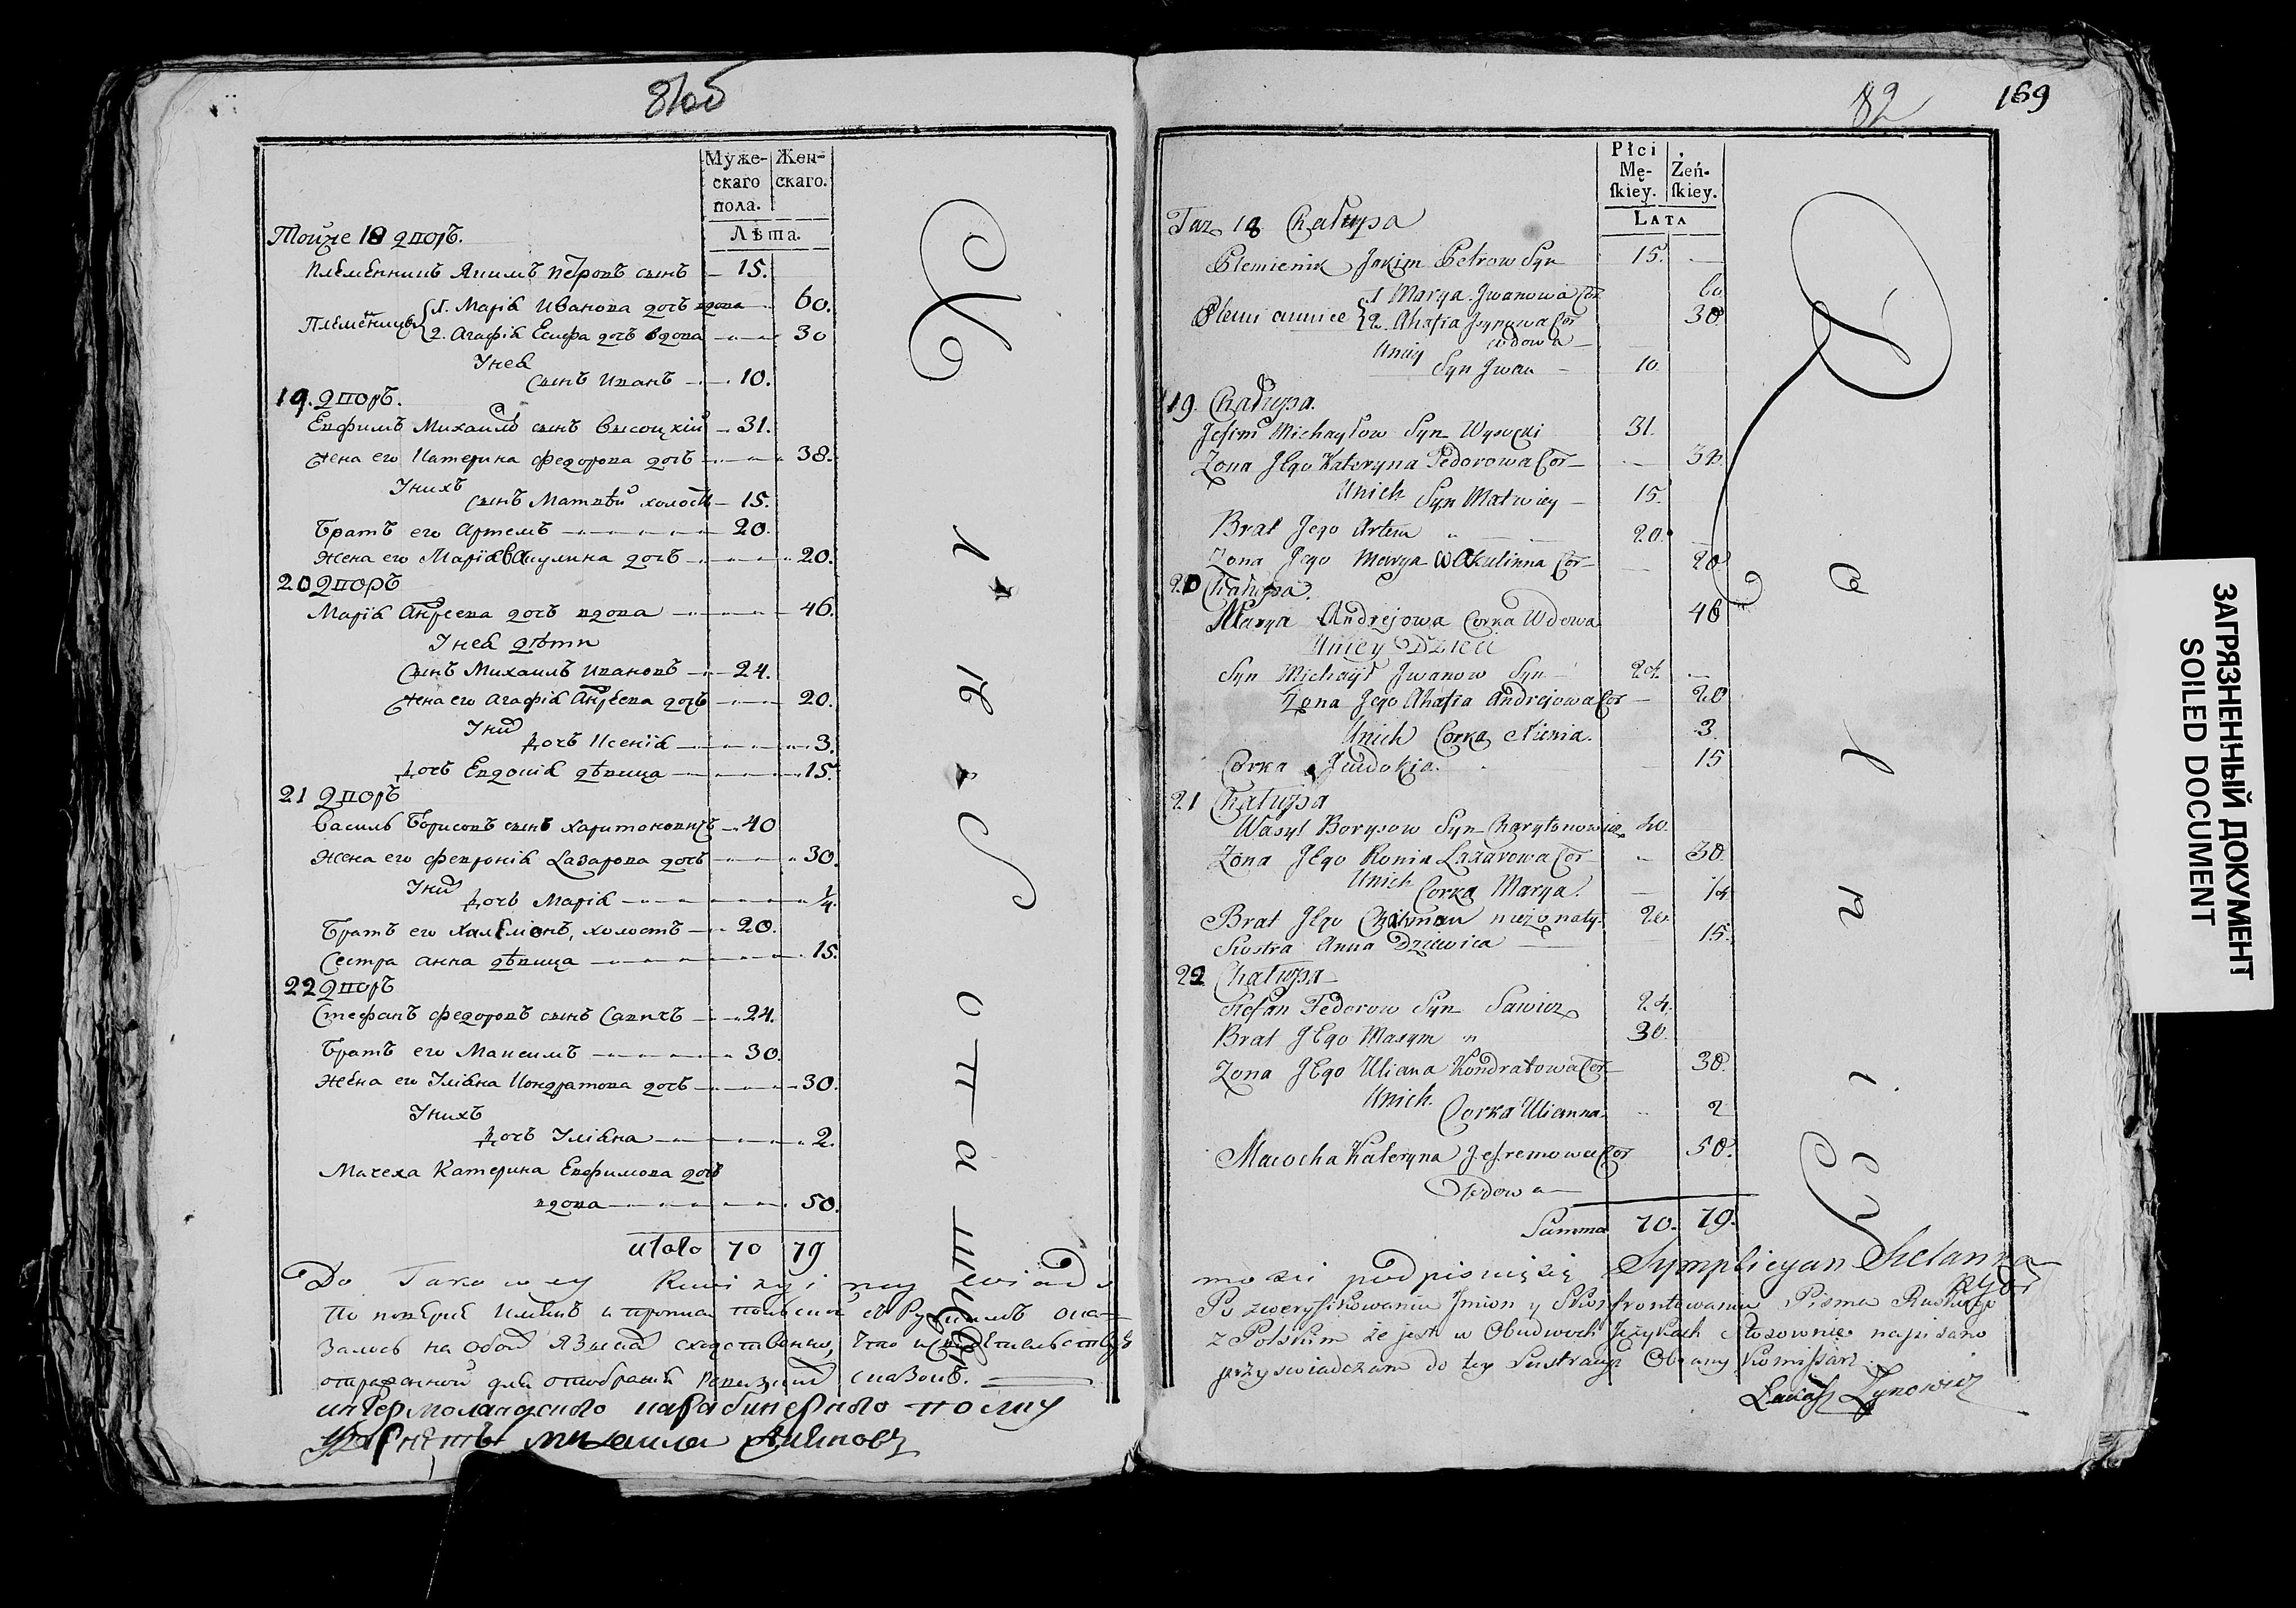 81об
Муже-
скаго
пола.
Жен-
скаго.
Лѣта.
Тойже 18 дворъ.
Племенникъ Якимъ Петровъ сынъ 15.
Племѣнницы 1. Марiя Иванова дочь вдова 60.
2. Агафiя Есифа дочь вдова 30
У нея
сынъ Иванъ 10.
19. дворъ.
Евфимъ Михаило сынъ Высоцкiй 31.
Жена его Катерина Федорова дочь 38.
У нихъ
сынъ Матвѣй холостъ 15.
Братъ его Артемъ 20.
Жена его Марiя Вакулина дочь 20.
20 дворъ
Марiя Андреева дочь вдова 46.
У нея дѣти
Сынъ Михаилъ Ивановъ 24.
Жена его Агафiя Андреева дочь 20.
У них
дочь Ксенiя 3.
дочь Евдокiя дѣвица 15.
21 дворъ
Василь Борисовъ сынъ Харитоновичъ 40
Жена его Феврониiя Лазарова дочь 30.
У них
дочь Марiя 1/4.
Братъ его холостъ 20.
Сестра Анна дѣвица 15.
22 дворъ
Стефанъ Федоровъ сынъ Савичъ 24.
Братъ его Максимъ 30.
Жена его Улiяна Кондратова дочь 30.
У нихъ
дочь Улiяна 2.
Мачеха Катерина Евфимова дочь
вдова 50.
итого 70 79
Do Takowey Rewizyi przy wiado
По повѣрке имянъ и
на обоя языках сходственно, что и свидѣтельствую
отряженной для отобранiя
карабинернаго полку
Михаила
82
169
Płci
Mę-
ſkiey.
Żeń-
ſkiey.
LATA
Taz 18 Chałupa
Plemienik Jakim Petrow Syn 15.
Plemiennice 1 Marya Jwanowa Cor 60
2. Ahafia Cor 30
wdowa
Uniey
Syn Jwan 10
19. Chałupa.
Jefim Michayłow Syn Wysocki 31.
Zona Jego Kateryna Fedorowa Cor 38.
Unich Syn Matwiey 15.
Brat Jego Artem 20.
Zona Jego Marya Wakulinna Cor 20
20 Chałupa.
Marya Andrejowa Corka Wdowa 46
Uniey Dzieci
Syn Michaył Jwanow Syn 24.
Zona Jego Ahafia Andrejowa Cor 20
Unich Corka 3
Corka Jewdokia. 15
21 Chałupa
Wasyl Borysow Syn Charytonowicz 40.
Zona Jego Ronia Lazarowa Cor 30.
Unich Corka Marya. 1/4
Brat Jego niezonaty. 20.
Siostra Anna Dziewica 15.
22 Chałupa
Stefan Fedorow Syn Sawicz 24.
Brat Jego Maxym 30.
Zona Jego Uliana Kondratowa Cor 30.
Unich.
Corka Ulianna 2
Macocha Kateryna Jefremowa Cor 50.
Wdowa
Summa 70. 79.
mosci podpisuię się Symplicyan
Po zweryfikowaniu Jmion y Skonfrontowaniu Pisma Ruskiego
z Polskim że jest w Obudwoch Językach stosownie napisano
przyswiadczam do tey Lustracyi Obrany Komissarz
Łukasz Zynowicz
ЗАГРЯЗНЕННЫЙ ДОКУМЕНТ
SOILED DOCUMENT